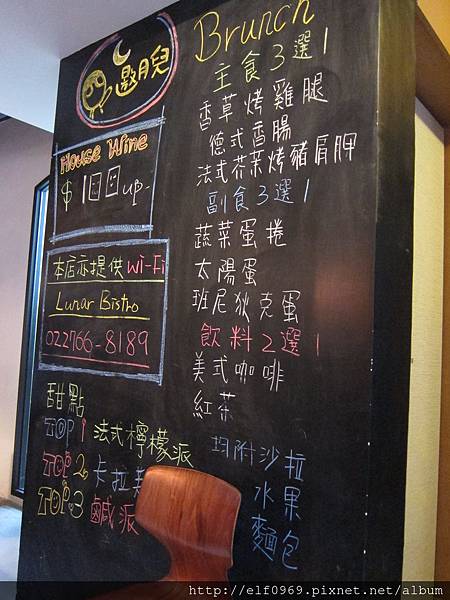 邀月兒
House Wine
$100up-
本店亦提供Wi-Fi
Lunar Bistro
022766-8189
甜點
TOP 1 法式檸檬派
TOP 2 卡拉
TOP.3 鹹派
Brunch
主食3選1
香草烤雞腿
德式香腸
法式芥茉烤豬肩胛
副食3選1
蔬菜蛋捲
太陽蛋
班尼狄克蛋
飲料2選1
美式咖啡
紅茶
均附沙拉
水果
麵包
http://elf0969.pixnet.net/album